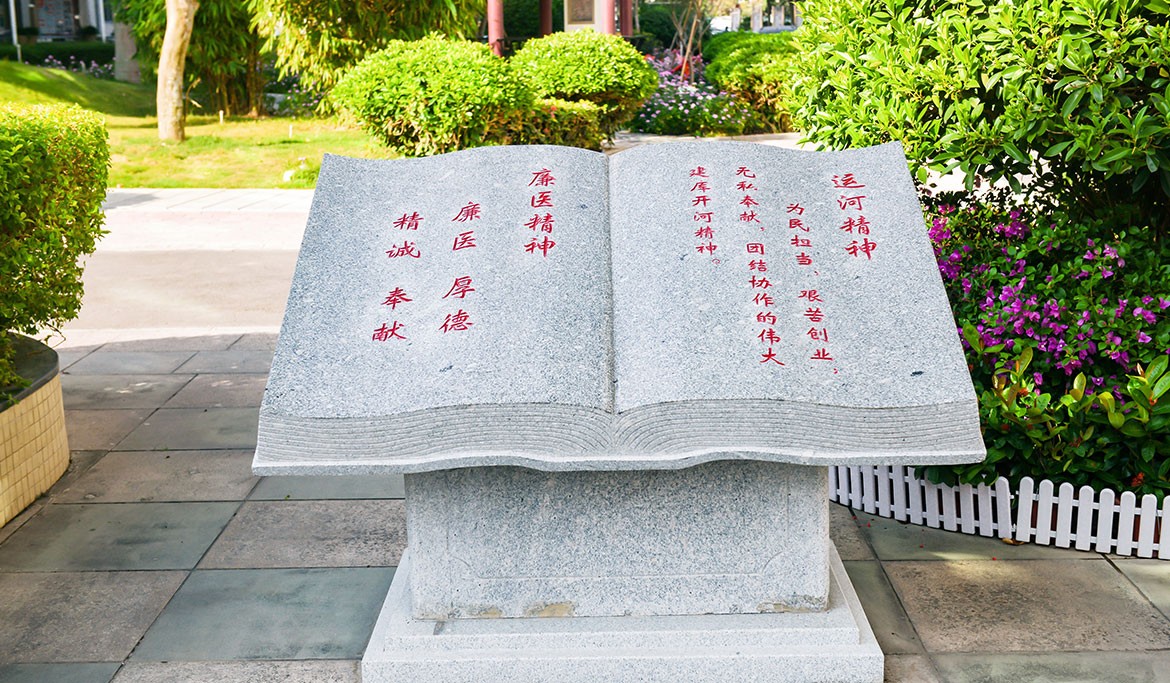 运河精神
为民担当、艰苦创业、
无私奉献、团结协作的伟大
建库开河精神。
廉医精神
廉医 厚德
精诚 奉献